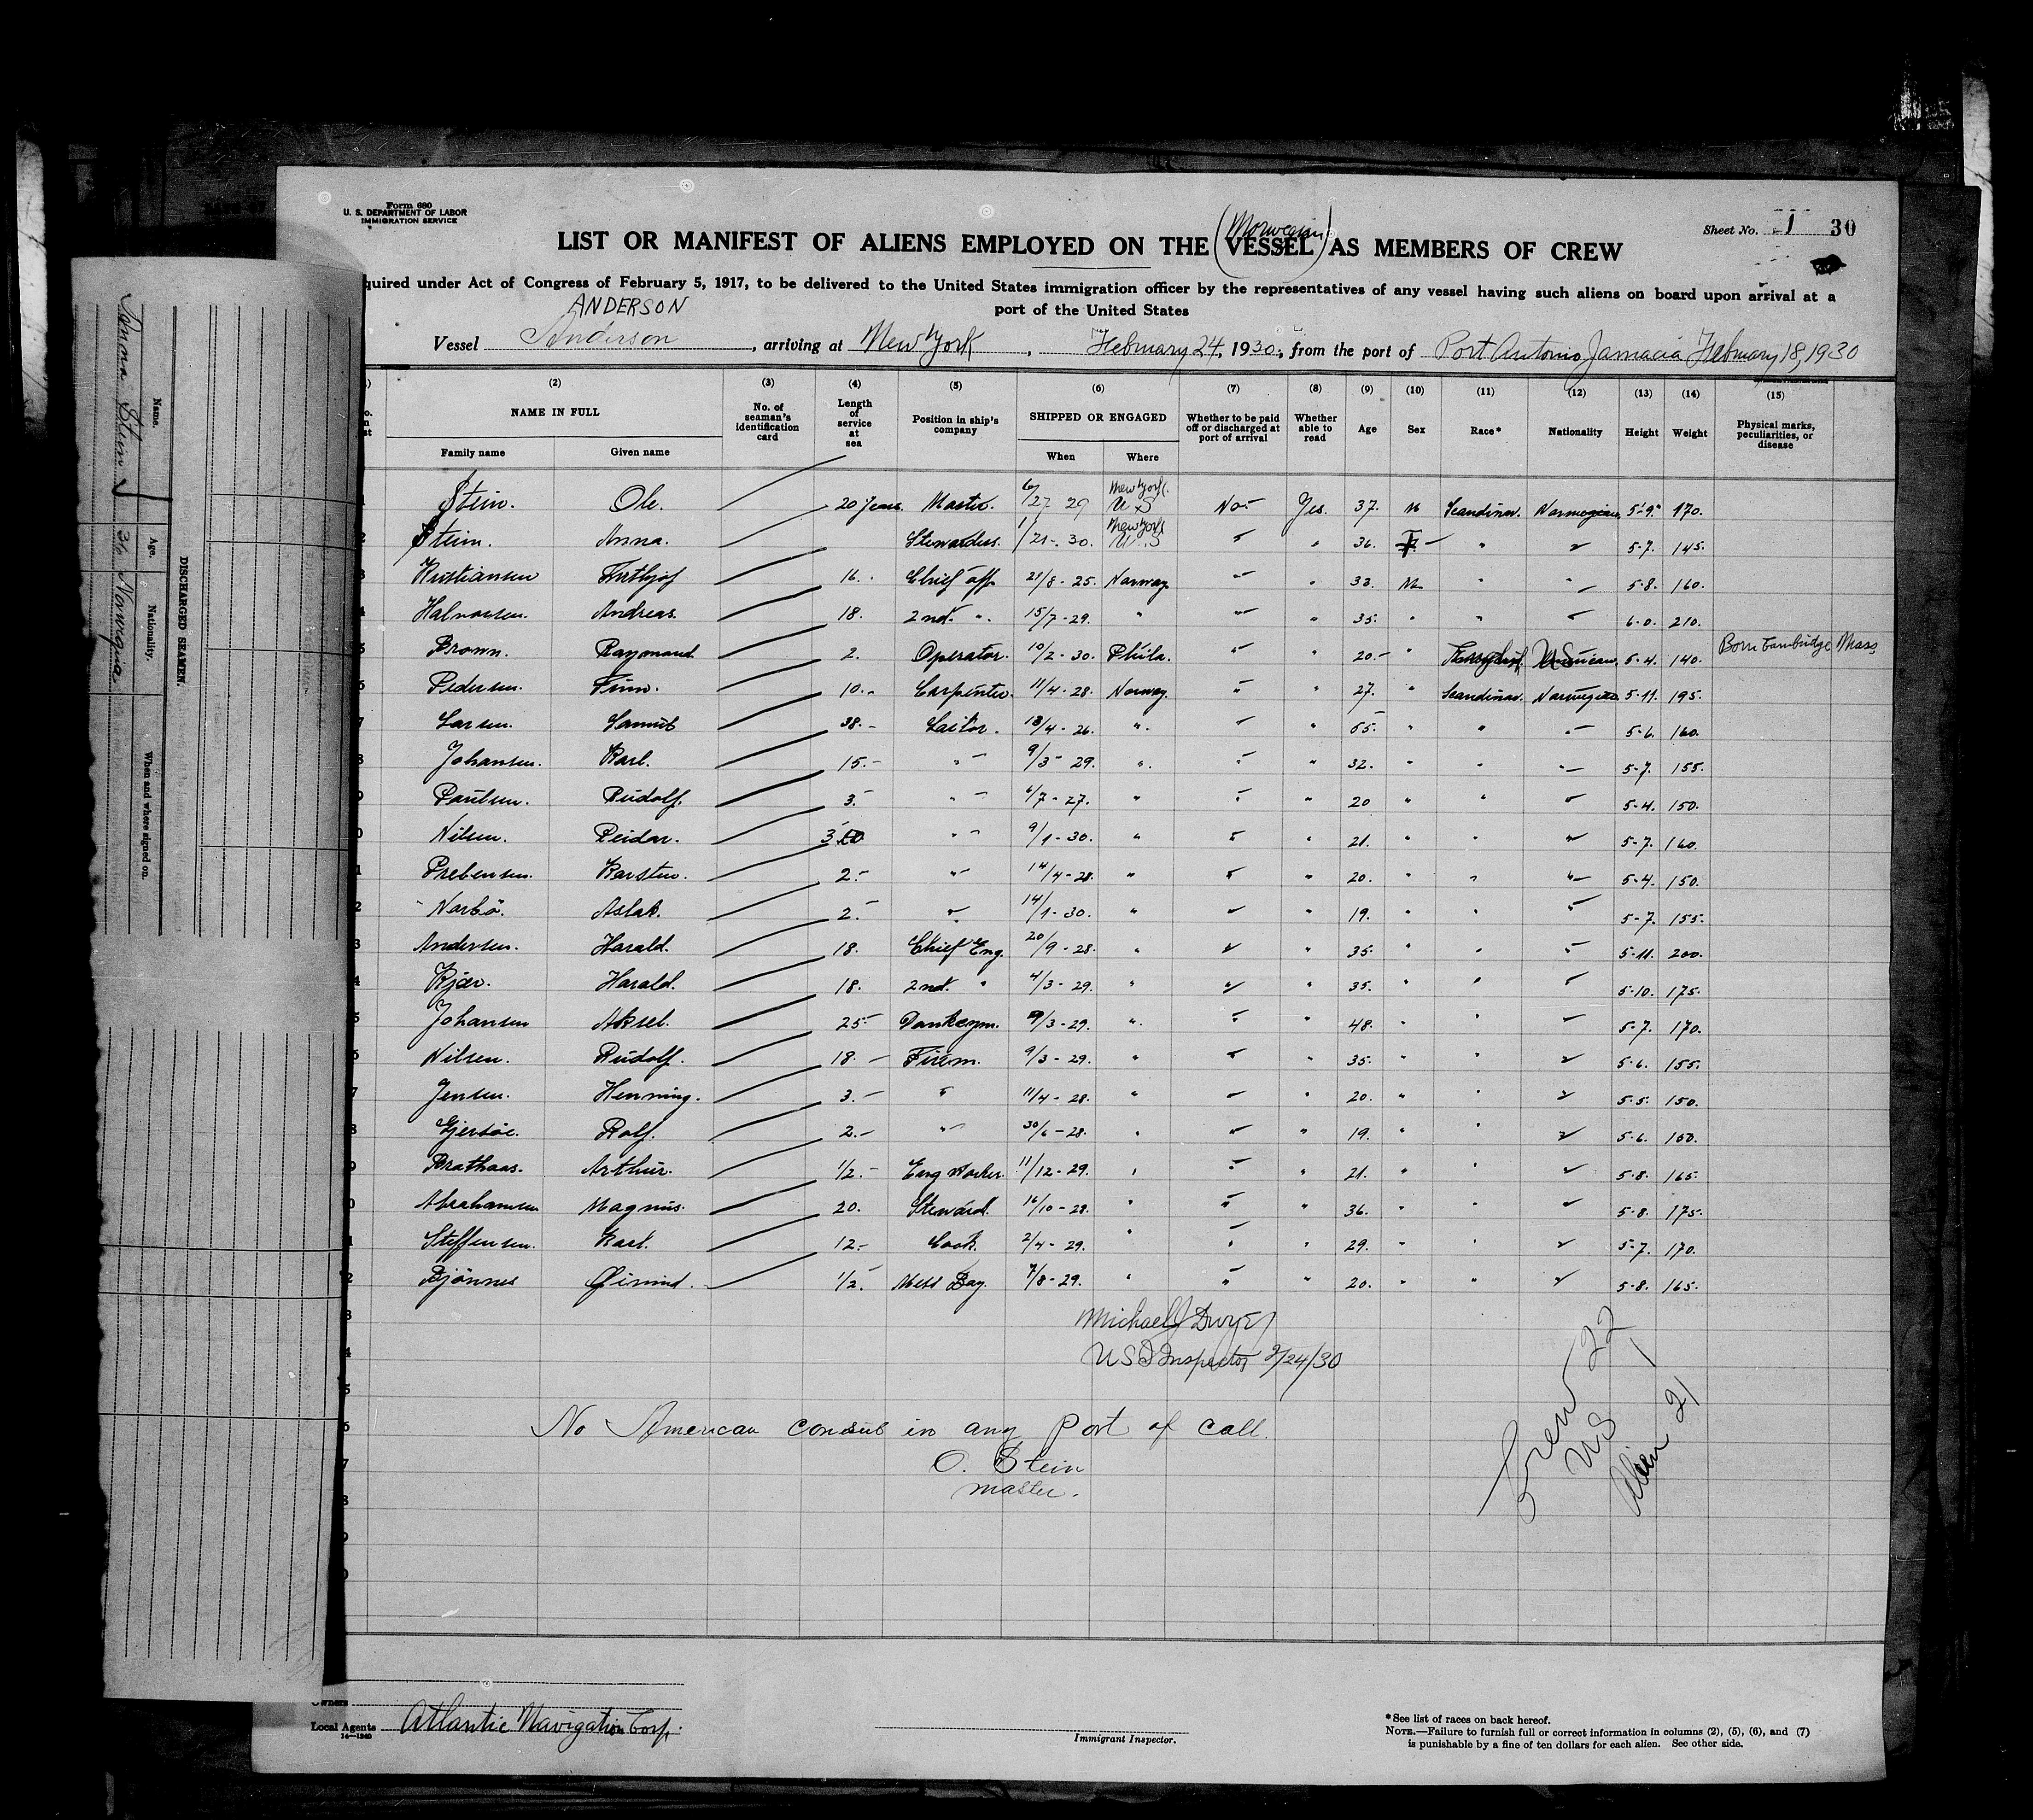 Form 680
U. S. DEPARTMENT OF LABOR
IMMIGRATION SERVICE
Sheet No. 1 30
(Norwegian)
LIST OR MANIFEST OF ALIENS EMPLOYED ON THE VESSEL AS MEMBERS OF CREW
quired under Act of Congress of February 5, 1917, to be delivered to the United States immigration officer by the representatives of any vessel having such aliens on board upon arrival at a
port of the United States
ANDERSON
Vessel Anderson, arriving at New York, February 24, 1930, from the port of Port Antonio Jamacia February 18, 1930
(2) (3) (4) (5) (6) (7) (8) (9) (10) (11) (12) (13) (14) (15)
NAME IN FULL No. of seaman's identification card Length of service at sea Position in ship's company SHIPPED OR ENGAGED Whether to be paid off or discharged at port of arrival Whether able to read Age Sex Race* Nationality Height Weight Physical marks, peculiarities, or disease
Family name Given name When Where
Stein. Ole. 20 years Master. 6/27 29 New York. U S No Yes. 37. M Scandinav. Norwegian 5-9. 170.
Stein. Anna. Stewardess. 1/21-30. New York U.S " " 36. F " " 5-7. 145.
Kristiansen Frithjof 16. Chief off. 21/8-25. Norway " " 33. M " " 5-8. 160.
Halvorsen. Andreas. 18. 2nd. " 15/7-29. " " " 35. " " " 6-0. 210.
Brown. Raymond 2. Operator. 10/2-30. Phila. " " 20. " US 5-4. 140. Born Cambridge Mass
Pedersen. Finn. 10. Carpenter. 11/4-28. Norway. " " 27. " Scandinav. Norwegian 5-11. 195.
Larsen. 38. Sailor. 13/4-26. " " " 55. " " " 5-6. 160.
Johansen. Karl. 15. " 9/3-29. " " " 32. " " " 5-7. 155.
Paulsen. Rudolf. 3. " 6/7-27. " " " 20 " " " 5-4. 150.
Nilsen. Reidar. 3 " 9/1-30. " " " 21. " " " 5-7. 160.
Prebensen. Karsten. 2. " 14/4-28. " " " 20. " " " 5-4. 150.
Narbö. Aslak. 2. " 14/1-30. " " " 19. " " " 5-7. 155.
Andersen. Harald. 18. Chief Eng. 20/9-28. " " " 35. " " " 5-11. 200.
Kjær. Harald. 18. 2nd. " 4/3-29. " " " 35. " " " 5-10. 175.
Johansen Aksel. 25 Donkeym. 9/3-29. " " " 48. " " " 5-7. 170.
Nilsen. Rudolf. 18. Firem. 9/3-29. " " " 35. " " " 5-6. 155.
Jensen. Henning. 3. " 11/4-28. " " " 20. " " " 5-5. 150.
Rolf. 2. " 30/6-28. " " " 19. " " " 5-6. 150.
Brathaas. Arthur. 1/2. Eng Worker 11/12-29. " " " 21. " " " 5-8. 165.
Abrahamsen Magnus. 20. Steward. 16/10-28. " " " 36. " " " 5-8. 175.
Steffensen. Karl. 12. Cook. 2/4-29. " " " 29. " " " 5-7. 170.
Bjönnes 1/2. Mess Boy. 7/8-29. " " " 20. " " " 5-8. 165.
Michael J Dwyer
U S I Inspector 2/24/30
Crew 22
US 1
Alien 21
No American consul in any port of call.
O. Stein
master.
Owners
Local Agents Atlantic Navigation Corp.
14—1240
Immigrant Inspector.
*See list of races on back hereof.
NOTE.—Failure to furnish full or correct information in columns (2), (5), (6), and (7)
is punishable by a fine of ten dollars for each alien. See other side.
DISCHARGED SEAMEN.
Name. Age. Nationality. When and where signed on.
Anna Stein 36 Norwegia